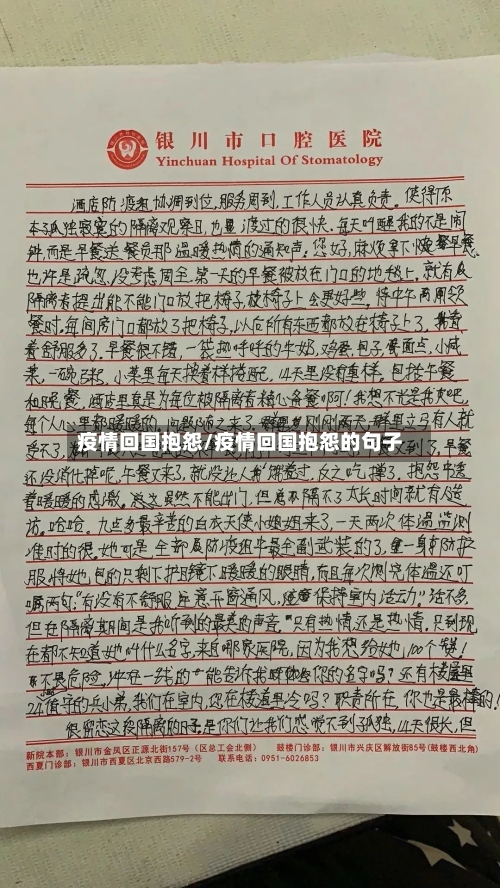 银川市口腔医院
Yinchuan Hospital Of Stomatology
酒店防疫组协调到位,服务周到,工作人员认真负责。使得原
本孤独寂寞的隔离观察日,也是渡过的很快。每天叫醒我的不是闹
钟,而是早餐送餐员那温暖热情的通知声:您好,麻烦拿下早餐。
也许是疏忽,没考虑周全,第一天的早餐被放在门口的地毯上,就有
隔离者提出能不能门口放把椅子,放椅子上会更好些,待中午再用
餐时,每间房门口都放了把椅子,以后所有东西都放在椅子上了,
着舒服多了。早餐很不错,一袋热呼呼的牛奶,鸡蛋,包子,面点,小咸
菜,一碗,小菜里每天换着样搭配,14天里没有重样。包括午餐
和晚餐,酒店里真是为每位被隔离者精心备餐啊!我想不光是我友吧,
每个人心里都暖暖的,
受不了,
疫情回国抱怨/疫情回国抱怨的句子
还没消化掉呢,午餐又来了,就没让人,
着暖暖的感激。虽然不能出门,但离不了太长时间就有人造
访。哈哈。九点多最辛苦的白衣天使小姐姐来了,一天两次体温监测
准时的很。她可是全部防疫组中最全副武装的了,一身防护
服将她包的只剩下护目镜下暖暖的眼睛,而且每次测完体温还叮
嘱两句:"有没有不舒服,注意开窗通风,保持室内活动"话不多,
但在隔离期间是我听到的最美的声音。只有热情还是热情,只到现
在都不知道她叫什么名字,来自哪家医院,因为我想给她100个赞!
不畏危险,冲在一线的"能告诉我你的名字吗?还有楼道里
24值守的兵小弟,我们在室内,您在楼道里冷吗?职责所在,你也是最棒的!
很留恋这段隔离的日子,是你们让我们感觉不到孤独,14天很长,但
新院本部:银川市金凤区正源北街157号(区总工会北侧) 鼓楼门诊部:银川市兴庆区解放街85号(鼓楼西北角)
西夏门诊部:银川市西夏区北京西路579-2号 联系电话:0951-6026853